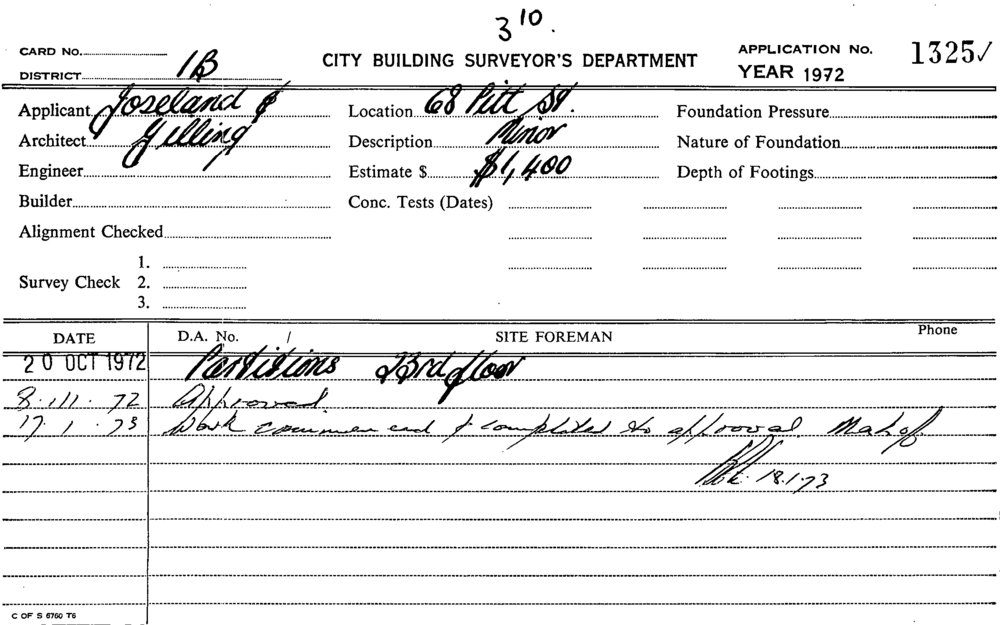 3 10.
CARD No.
DISTRICT 1B
CITY BUILDING SURVEYOR'S DEPARTMENT
APPLICATION No. 1325✓
YEAR 1972
Applicant Joseland &
Architect Gilling
Engineer
Builder
Alignment Checked
Survey Check
1.
2.
3.
Location 68 Pitt St.
Description Minor
Estimate $ $1,400
Conc. Tests (Dates)
Foundation Pressure
Nature of Foundation
Depth of Footings
DATE D.A. No. / SITE FOREMAN Phone
20 OCT 1972 Partitions 23rd floor
8.111.72 Approved.
17.1.73 Work commenced & completed to approval.
18.1.73
C OF S 6760 T6